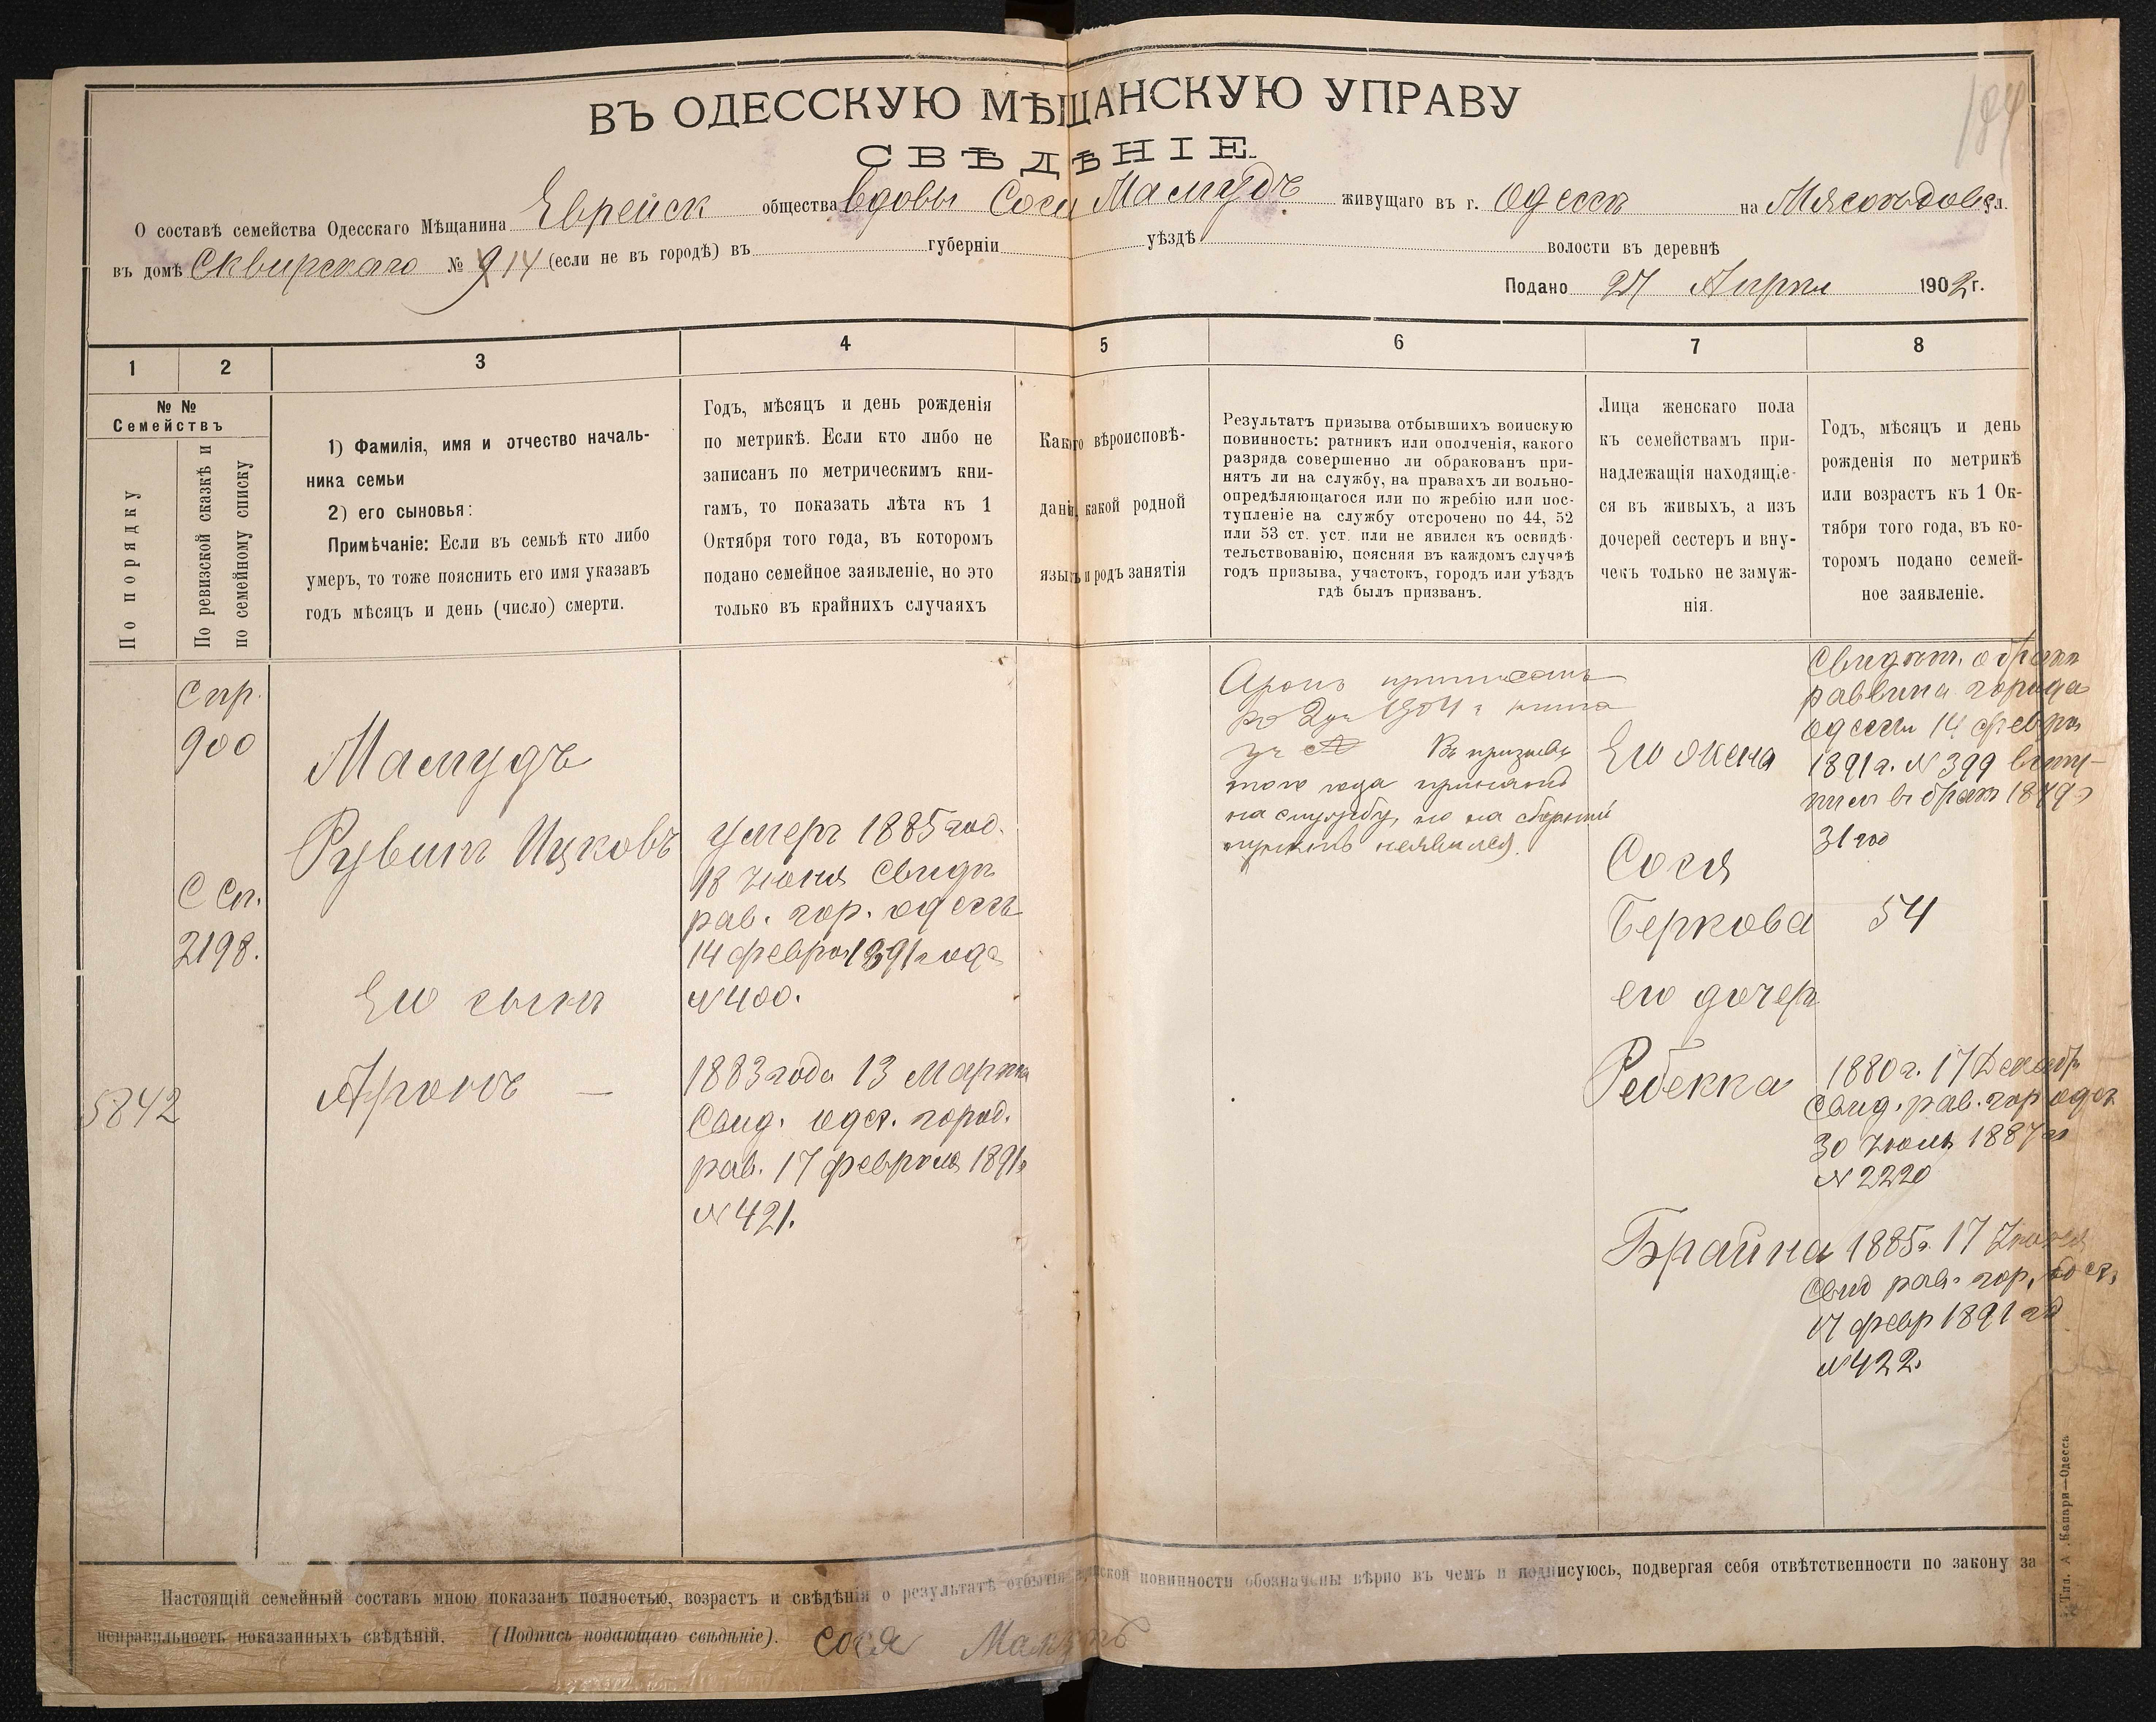 184
ВЪ ОДЕССКУЮ МѢЩАНСКУЮ УПРАВУ
СВѢДѢНІЕ.
О составѣ семейства Одесскаго Мѣщанина Еврейск общества вдовы Соси Мамудъ живущаго въ г. Одессѣ на Мясоѣдовс ул.
въ домѣ Сквирскаго № 14 (если не въ городѣ) въ губерніи уѣздѣ волости въ деревнѣ
Подано 27 Апрѣл 1902 г.
1
2
3
4
5
6
7
8
№ №
Семействъ
По порядку
По ревизской сказкѣ и
по семейному списку
1) Фамилія, имя и отчество началь-
ника семьи
2) его сыновья:
Примѣчаніе: Если въ семьѣ кто либо
умеръ, то тоже пояснить его имя указавъ
годъ мѣсяцъ и день (число) смерти.
Годъ, мѣсяцъ и день рожденія
по метрикѣ. Если кто либо не
записанъ по метрическимъ кни-
гамъ, то показать лѣта къ 1
Октября того года, въ которомъ
подано семейное заявленіе, но это
только въ крайнихъ случаяхъ
Какого вѣроисповѣ-
данія, какой родной
языкъ и родъ занятія
Результатъ призыва отбывшихъ воинскую
повинность: ратникъ или ополченія, какого
разряда совершенно ли обракованъ при-
нятъ ли на службу, на правахъ ли вольно-
опредѣляющагося или по жребію или пос-
тупленіе на службу отсрочено по 44, 52
или 53 ст. уст. или не явился къ освидѣ-
тельствованію, поясняя въ каждомъ случаѣ
годъ призыва, участокъ, городъ или уѣздъ
гдѣ былъ призванъ.
Лица женскаго пола
къ семействамъ при-
надлежащія находящіе-
ся въ живыхъ, а изъ
дочерей сестеръ и вну-
чекъ только не замуж-
нія.
Годъ, мѣсяцъ и день
рожденія по метрикѣ
или возрастъ къ 1 Ок-
тября того года, въ ко-
торомъ подано семей-
ное заявленіе.
Спр.
900
С Сп.
2198.
5842
Мамудъ
Рувинъ Ицковъ
Его сынъ
Аронъ —
умеръ 1885 год.
18 Июня Свидѣ
рав. гор. одессѣ
14 февра 1891 года
№ 400.
1883 года 13 Марта
Свид. одес. город.
рав. 17 февраля 1891 г
№ 421.
Аронъ приписанъ
1904 г
Въ призывъ
того года принятъ
на службу, но на сборный
пунктъ неявился.
Его жена
Сося
Беркова
его дочерь
Ребекка
Брайна
Свидѣт. о бракѣ
раввина города
одессы 14 февра
1891 г. № 399 вступ-
или въ бракъ 1879 г
31 год
54
1880 г. 17 Декабр
свид. рав. гор одес
30 Июль 1887 г
№ 2220
1885 г. 17 Июня
Свид рав. гор.
17 февр 1891 год
№ 422.
Настоящій семейный составъ мною показанъ полностью, возрастъ и свѣдѣнія о результатѣ отбытія воинской повинности обозначены вѣрно въ чемъ и подписуюсь, подвергая себя отвѣтственности по закону за
неправильность показанныхъ свѣдѣній. (Подпись подающаго свѣдѣніе). Сося Мамудъ
Тип. А. Капари—Одесса